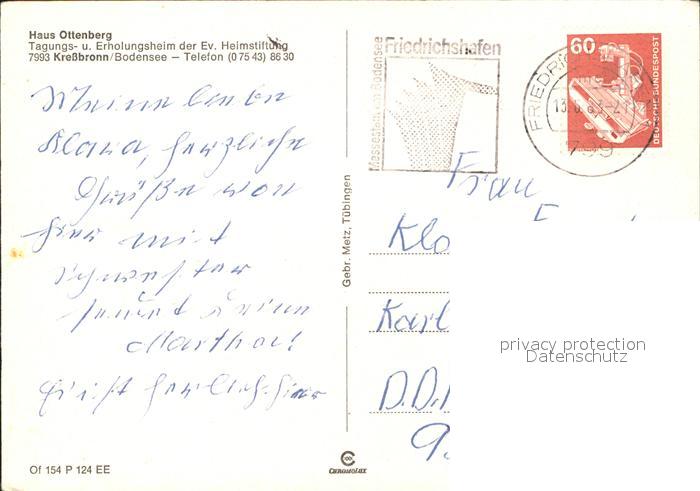 Haus Ottenberg
Tagungs- u. Erholungsheim der Ev. Heimstiftung
7993 Kreßbronn/Bodensee — Telefon (0 75 43) 86 30
Meine liebe
Klara, herzliche
Grüße von
hier mit
Schwester
sendet Deine
Martha!
Es ist herrlich hier
Of 154 P 124 EE
Gebr. Metz, Tübingen
CHROMOLUX
Friedrichshafen
Bodensee
60
DEUTSCHE BUNDESPOST
FRIEDRIC
13.6.83-21
799
Frau
Kla
Karl
D.D.
privacy protection
Datenschutz